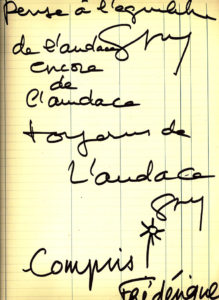 Pense à l'équilibre
de l'audace Guy
encore
de
l'audace
toujours de
L'audace
Guy
Compris
Frédérique